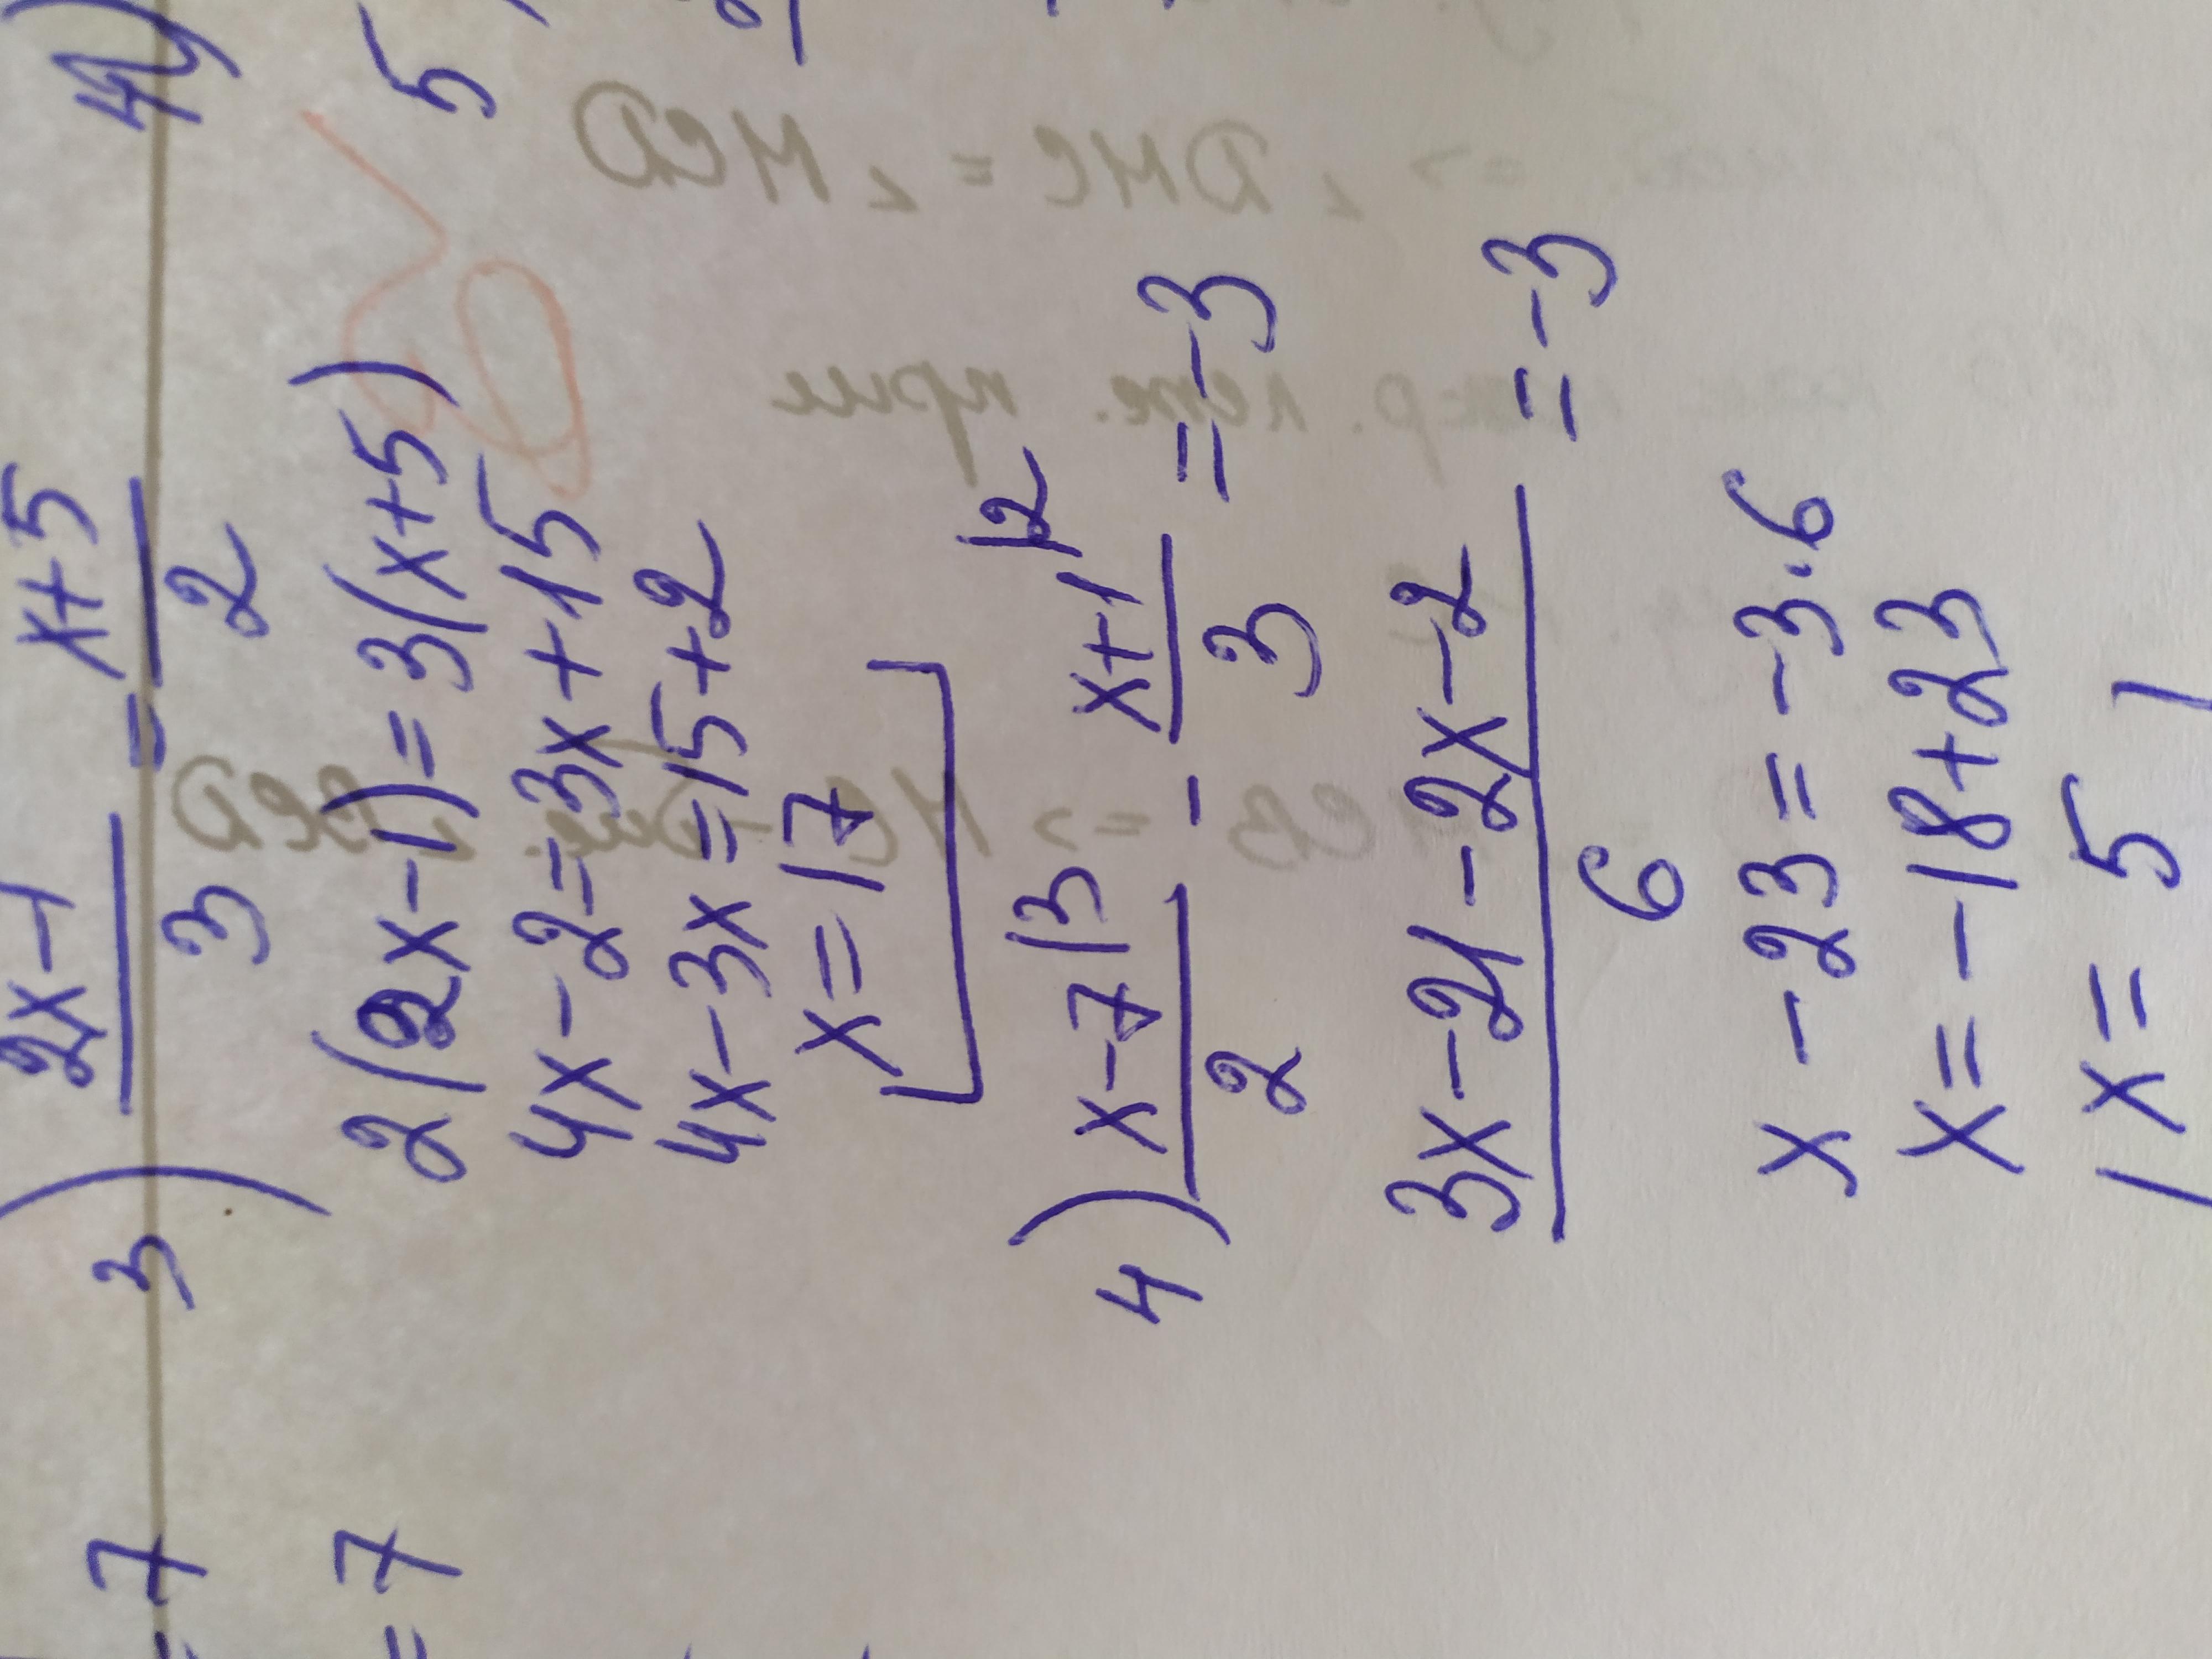 3) 2x-1/3 = x+5/2
2(2x-1)=3(x+5)
4x-2=3x+15
4x-3x=15+2
x=17
4) x-7/2 |3 - x+1/3 |2 = -3
3x-21-2x-2/6 = -3
x-23=-3·6
x=-18+23
x=5
=7
=7
4)
5